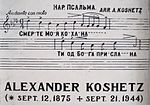 Andante con moto НАР. ПСАЛЬМА. ARR. A. KOSHETZ
СМЕР ТЕ МО Я КО ХА НА
ТИ ОД БО ГА ПРИ СЛА НА
ALEXANDER KOSHETZ
(* SEPT. 12, 1875 + SEPT. 21, 1944)